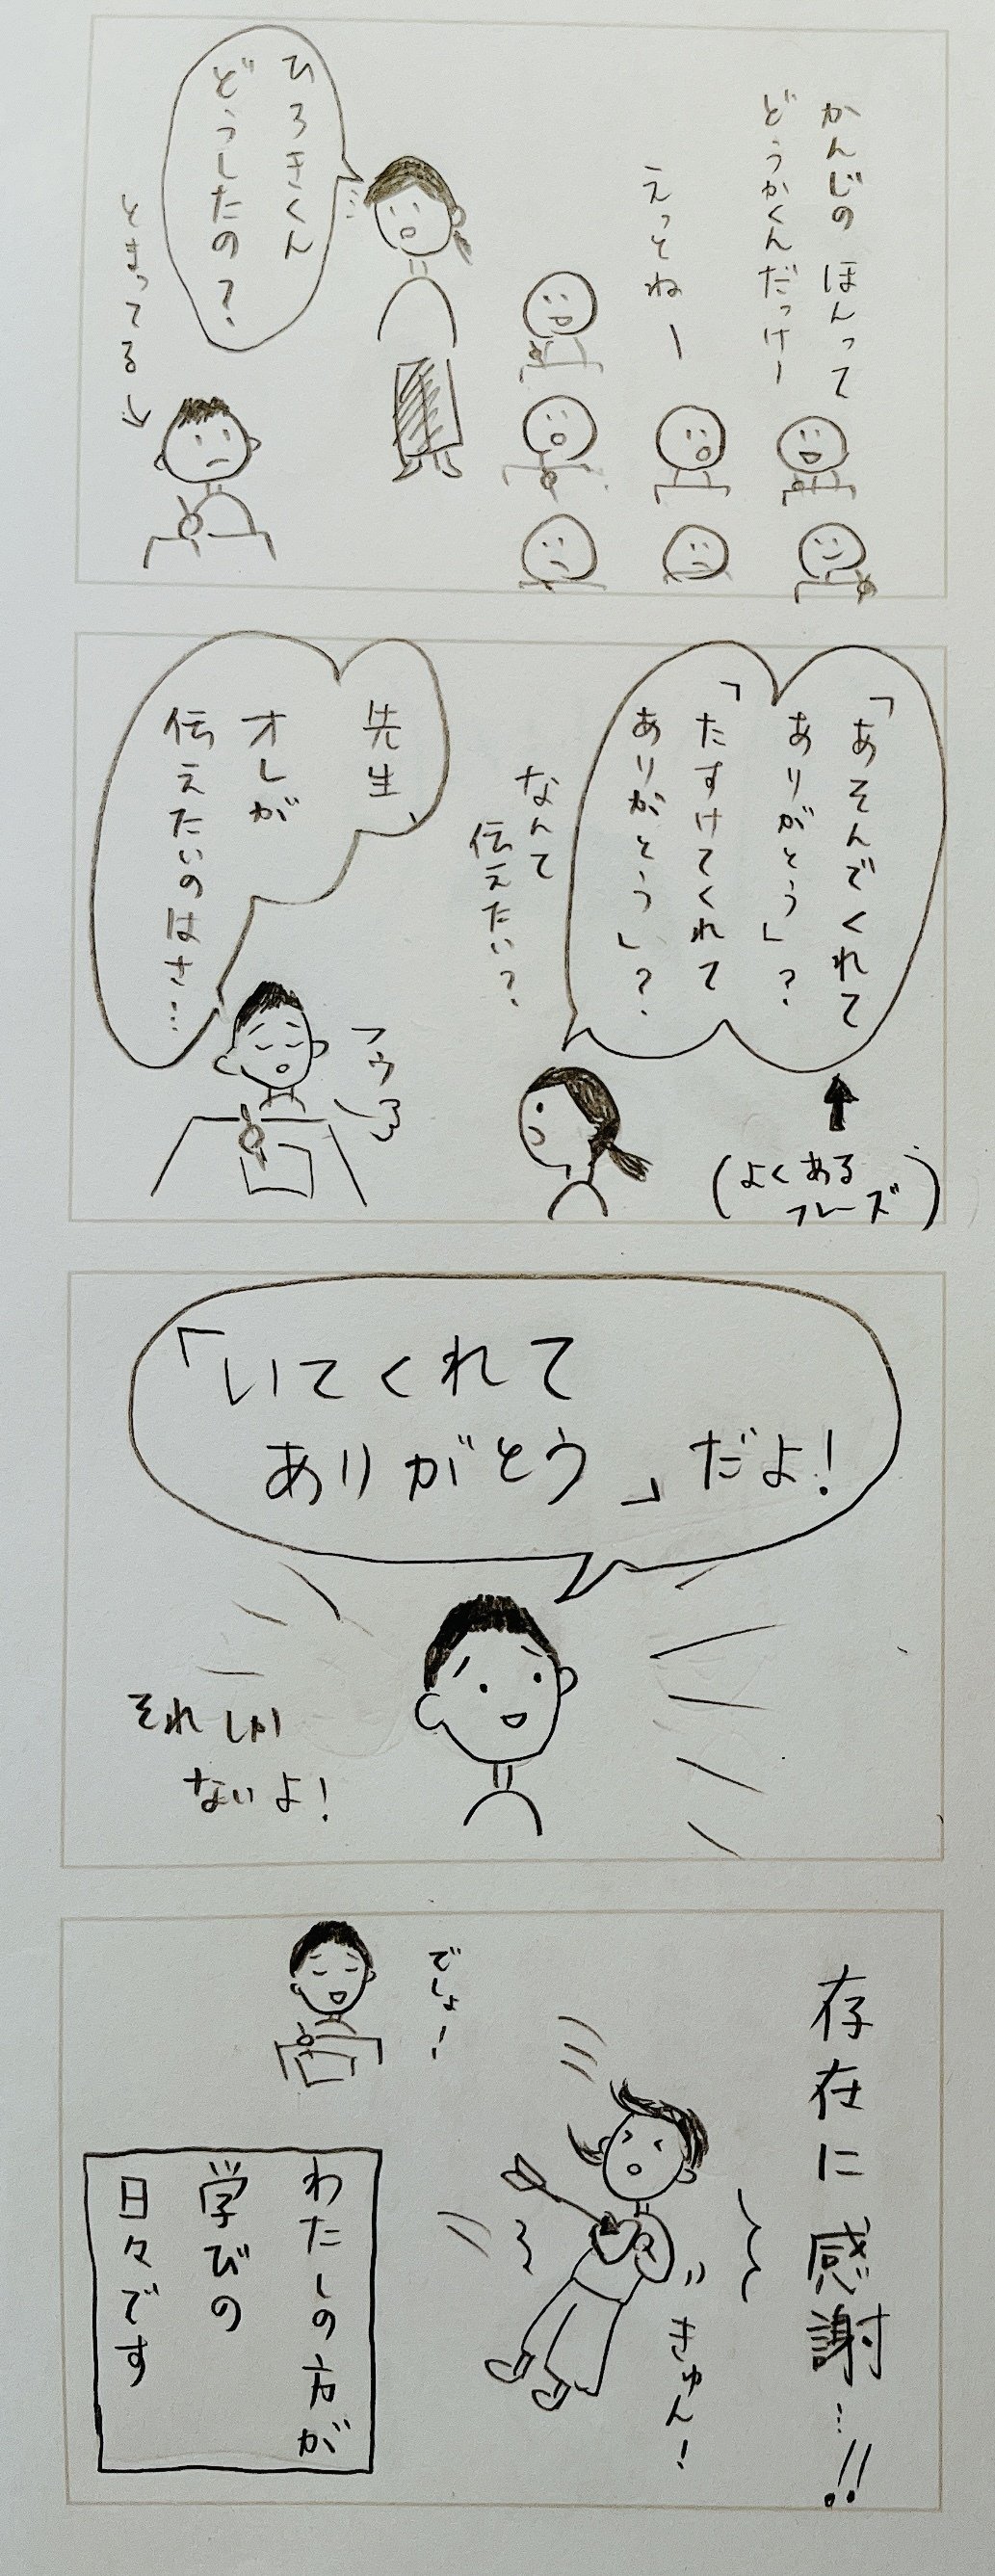 かんじの ほんって
どうかくんだっけー
えっとねー
ひろきくん
どうしたの？
とまってる→
「あそんでくれて
ありがとう」？
「たすけてくれて
ありがとう」？
(よくある
フレーズ)
なんて
伝えたい？
先生、
オレが
伝えたいのはさ…
フゥ
「いてくれて
ありがとう」だよ！
それしか
ないよ！
存在に感謝…!!
きゅん！
でしょ！
わたしの方が
学びの
日々です